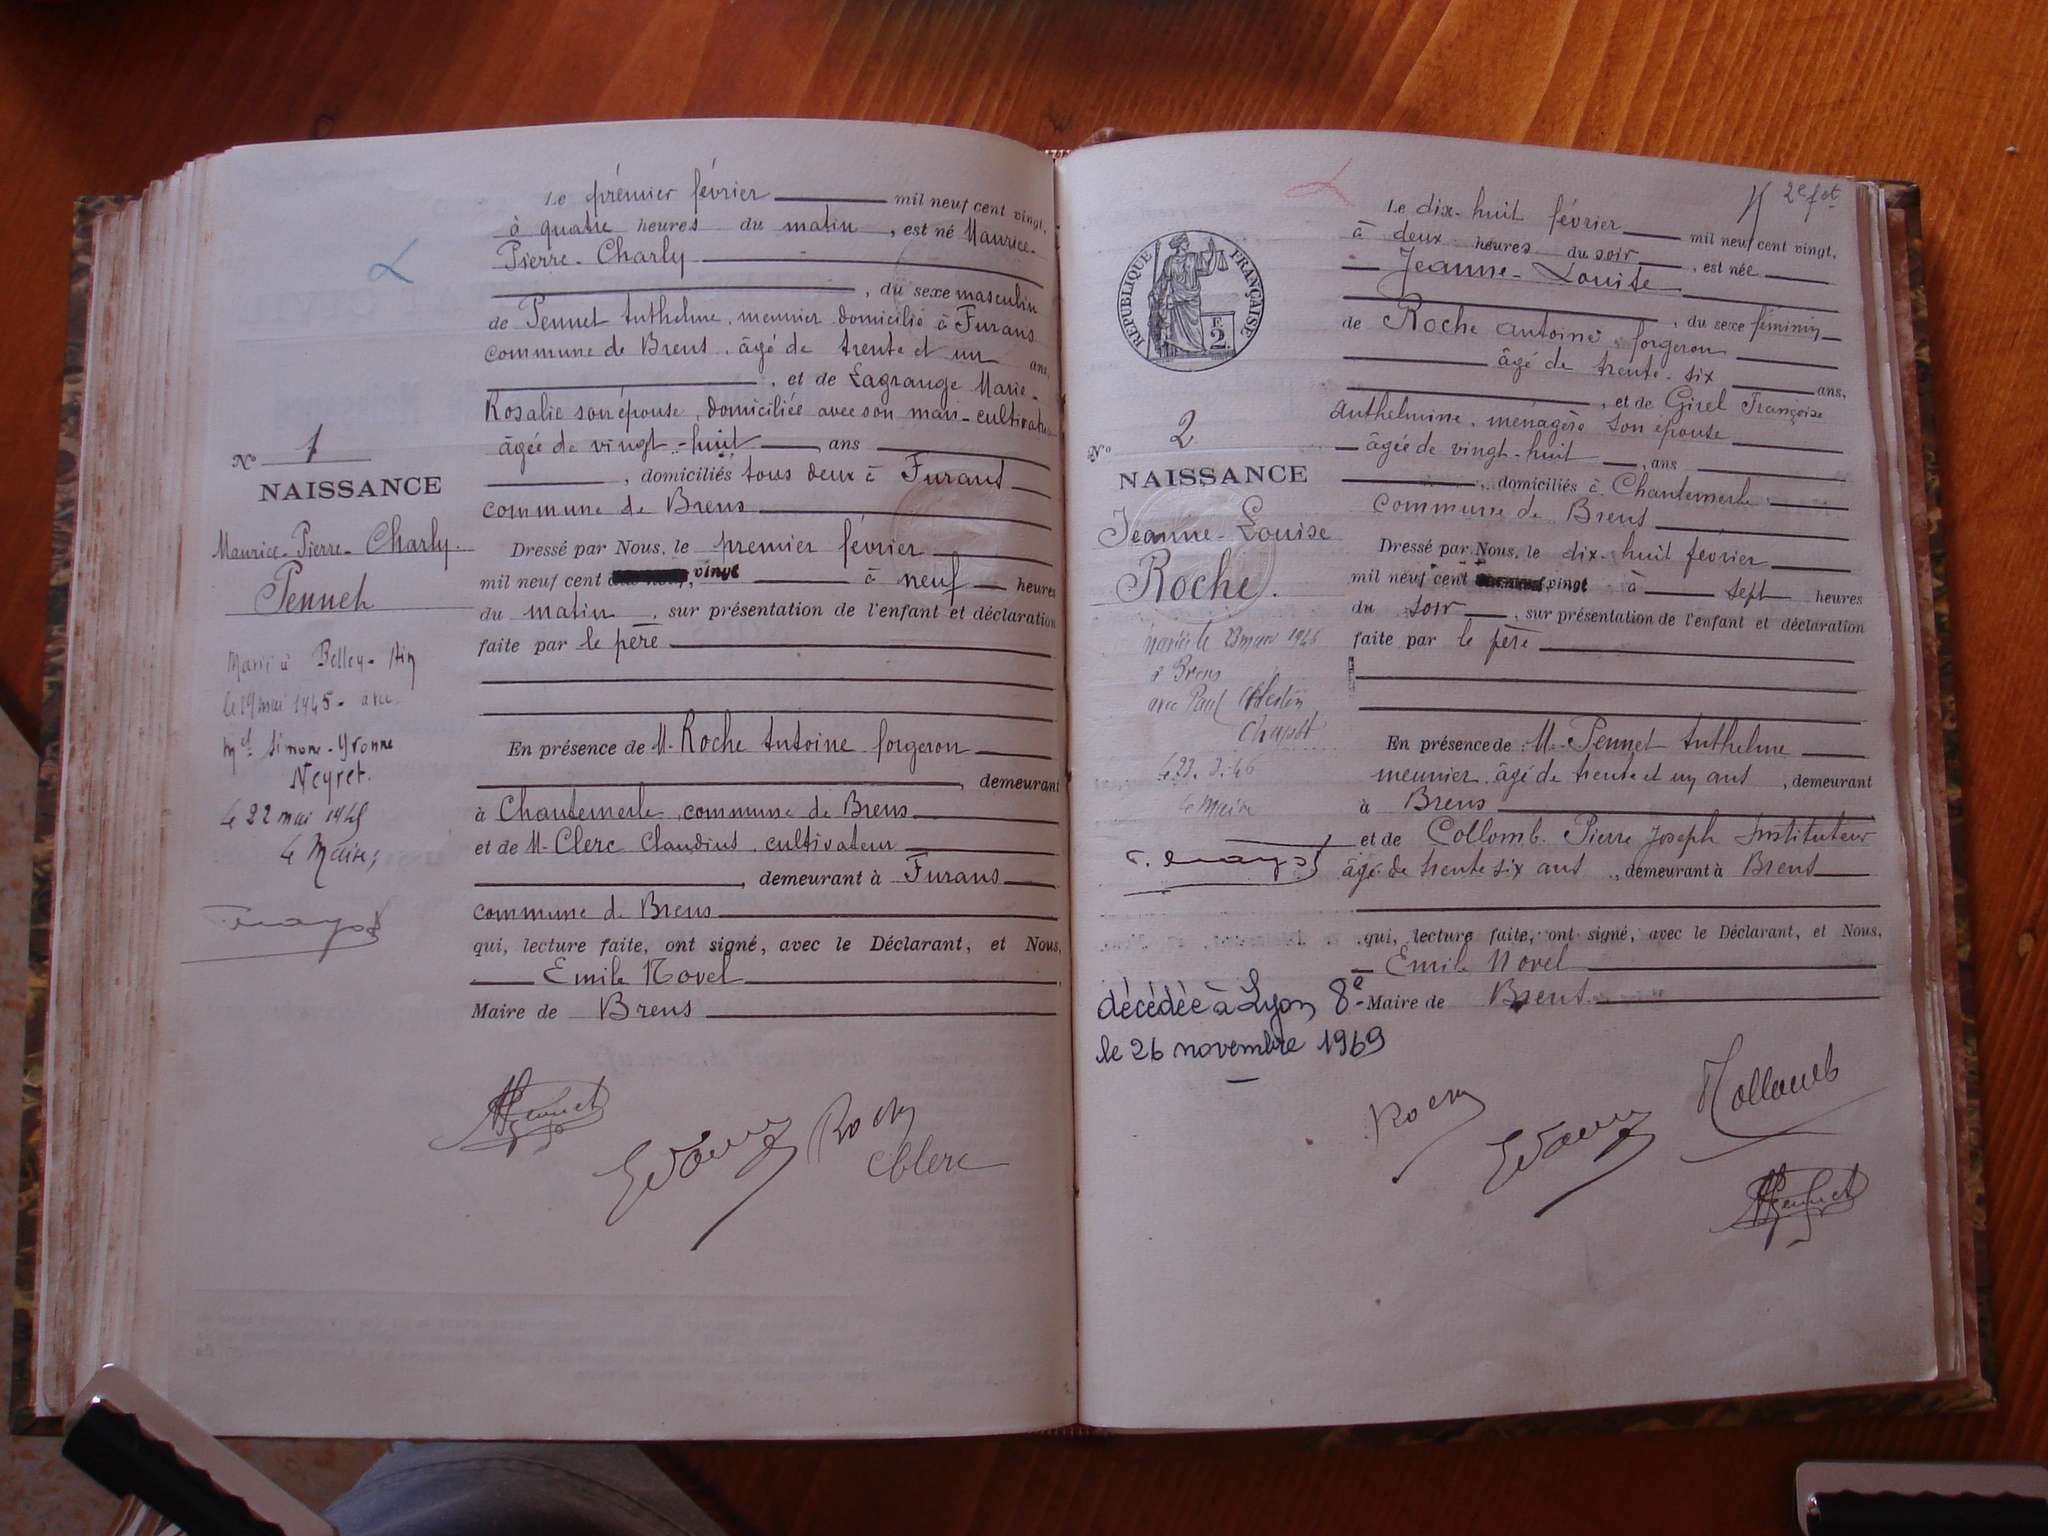 Le prémier février mil neuf cent vingt,
à quatre heures du matin, est né Maurice-
Pierre-Charly
, du sexe masculin
de Pennet Anthelme, meunier domicilié à Furans
commune de Brens, âgé de trente et un ans,
, et de Lagrange Marie-
Rosalie son épouse, domiciliée avec son mari-
âgée de vingt-huit ans
, domiciliés tous deux à Furans
commune de Brens
Dressé par Nous, le premier février
mil neuf cent vingt à neuf heures
du matin, sur présentation de l'enfant et déclaration
faite par le père
En présence de M. Roche Antoine forgeron
, demeurant
à Chantemerle, commune de Brens
et de M. Clerc Claudius, cultivateur
, demeurant à Furans
commune de Brens
qui, lecture faite, ont signé, avec le Déclarant, et Nous,
Emile Novel
Maire de Brens
N° 1
NAISSANCE
Maurice-Pierre-Charly
Pennet
Marié à Belley-Ain
le 19 mai 1945 - avec
Simone-Yvonne
Neyret.
le 22 mai 1945
le Maire,
Roche
Clerc
2e fet
Le dix-huit février mil neuf cent vingt,
à deux heures du soir, est née
Jeanne-Louise
, du sexe féminin
de Roche Antoine, forgeron
âgé de trente-six ans,
, et de Girel Françoise
Anthelmine, ménagère son épouse
âgée de vingt-huit, ans
, domiciliés à Chantemerle
commune de Brens
Dressé par Nous, le dix-huit février
mil neuf cent vingt à sept heures
du soir, sur présentation de l'enfant et déclaration
faite par le père
En présence de M. Pennet Anthelme
meunier, âgé de trente et un ans, demeurant
à Brens
et de Collomb Pierre Joseph Instituteur
âgé de trente six ans, demeurant à Brens
qui, lecture faite, ont signé, avec le Déclarant, et Nous,
Emile Novel
Maire de Brens
RÉPUBLIQUE FRANÇAISE
F. 2
N° 2
NAISSANCE
Jeanne-Louise
Roche.
Mariée le 23 mars 1946
à Brens
avec Paul
le Maire
décédée à Lyon 8e
le 26 novembre 1969